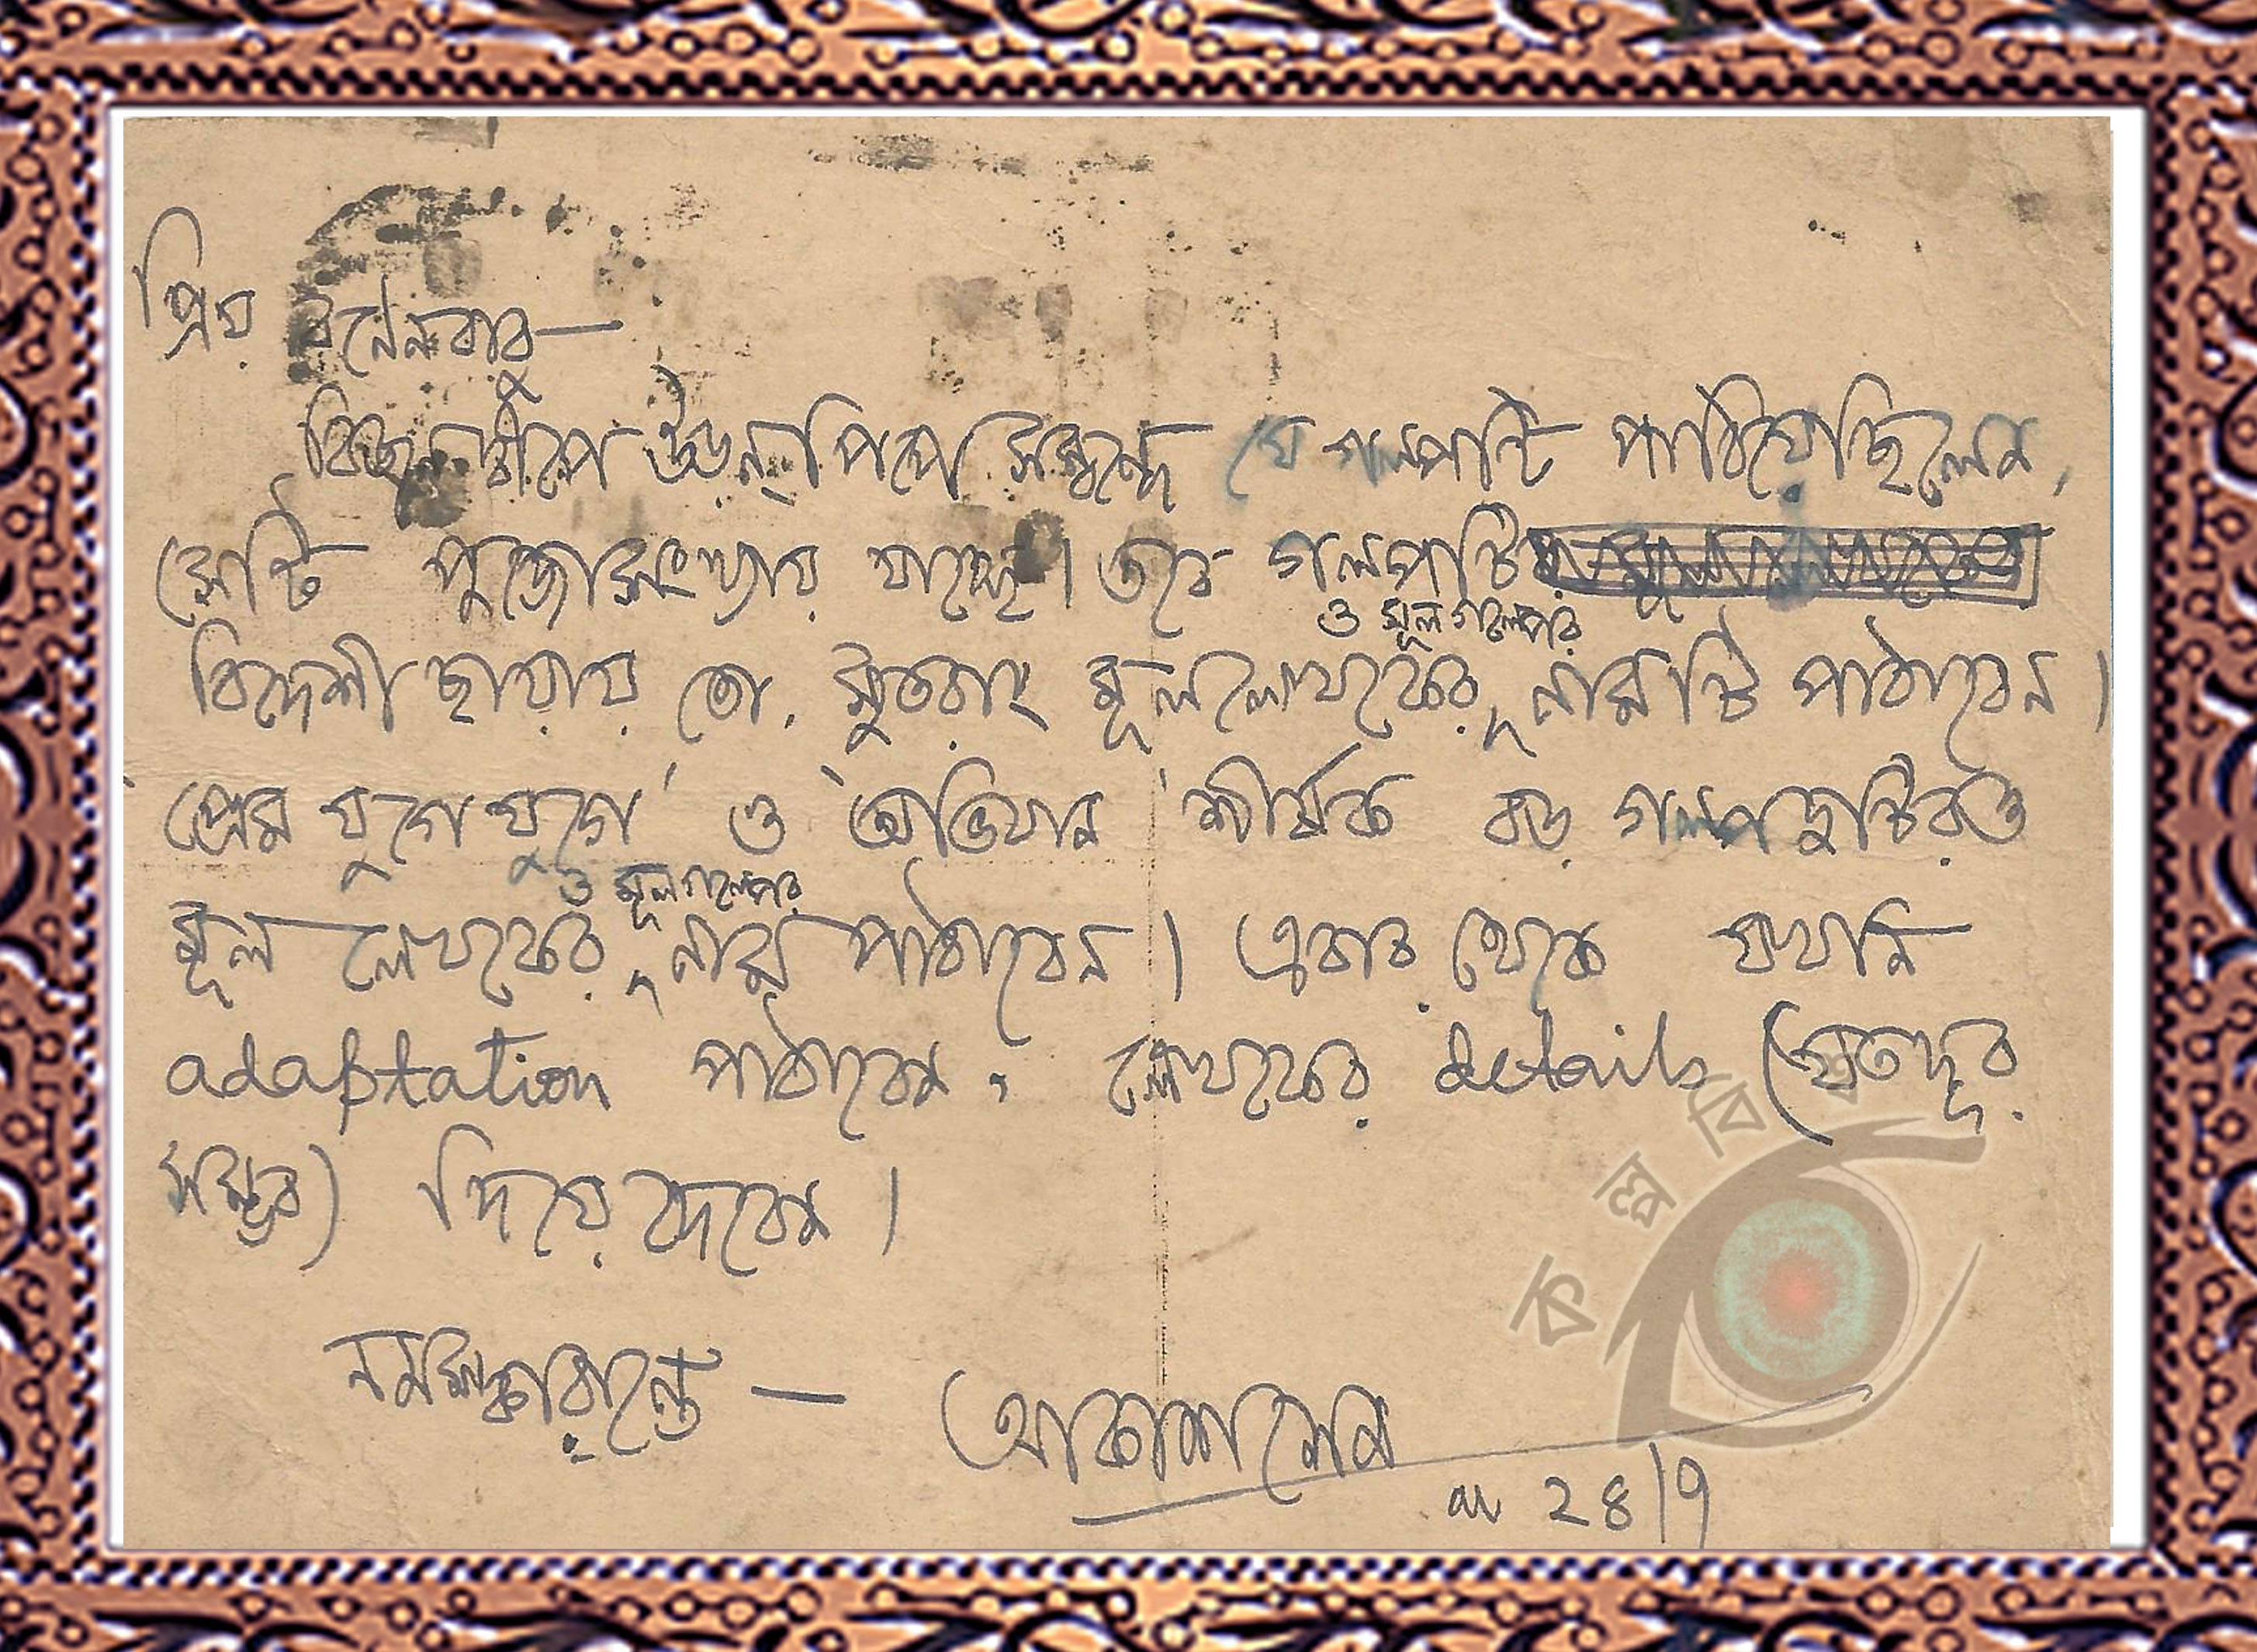 প্রিয় রনেনবাবু —
বিজন দ্বীপে উড়ন্ পিপে সম্বন্ধে যে গল্পটি পাঠিয়েছিলেন,
সেটি পুজোসংখ্যায় যাচ্ছে। তবে গল্পটি
ও মূল গল্পের
বিদেশী ছায়ায় তো. সুতরাং মূল লেখকের নামটি পাঠাবেন।
'প্রেম যুগে যুগে' ও 'অভিযান' শীর্ষক বড় গল্পদুটিরও
ও মূল গল্পের
মূল লেখকের নাম পাঠাবেন। এবার থেকে যখনি
adaptation পাঠাবেন, লেখকের details (যতদূর
সম্ভব) দিয়ে দেবেন।
নমস্কারান্তে — আকাশ সেন
২৪/৭
কল্পবি